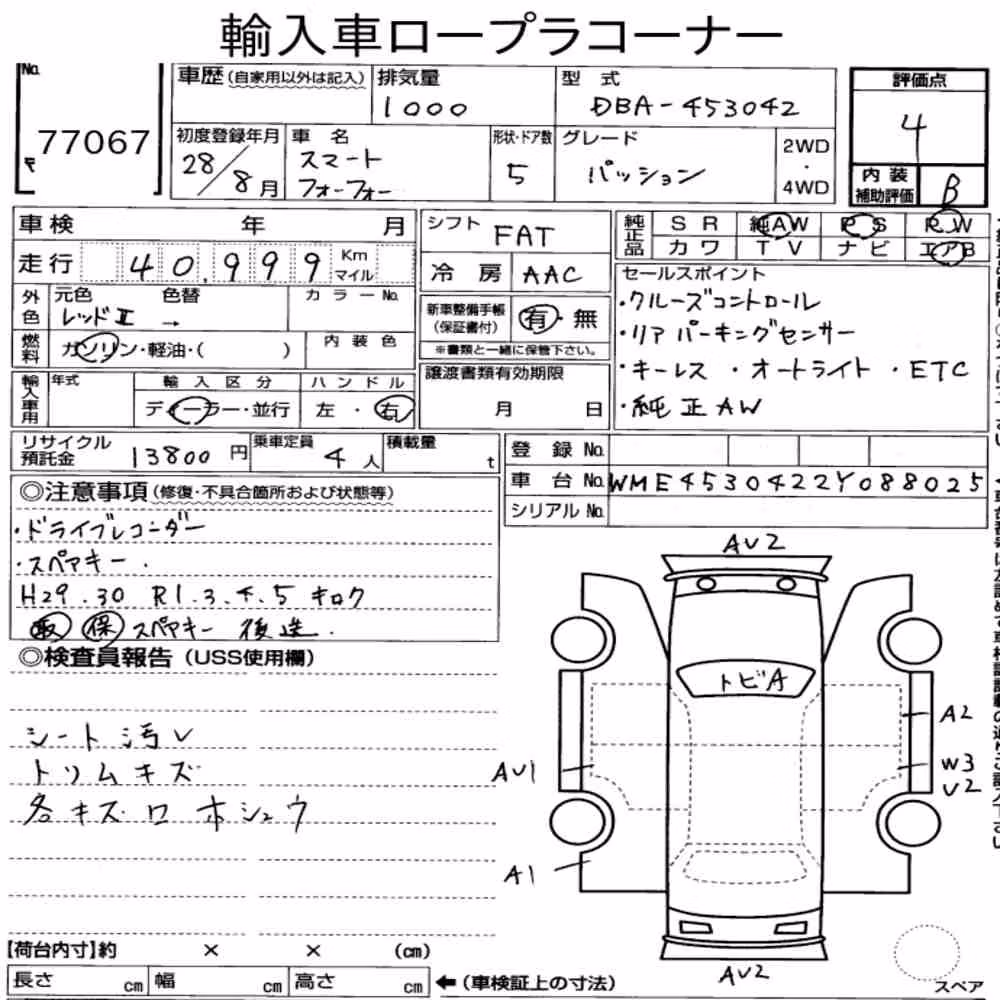 輸入車ロープラコーナー
No. 77067
車歴(自家用以外は記入) 排気量 1000 型式 DBA-453042
評価点 4
初度登録年月 28/8月 車名 スマート フォーフォー 形状・ドア数 5 グレード パッション 2WD・4WD
内装補助評価 B
車検 年 月 シフト FAT
純正品 SR 純AW PS RW
カワ TV ナビ エアB
走行 40,999 Km マイル 冷房 AAC
セールスポイント
外色 元色 レッドⅡ 色替 → カラーNo.
新車整備手帳(保証書付) 有・無
※書類と一緒に保管下さい。
・クルーズコントロール
・リアパーキングセンサー
・キーレス ・オートライト ・ETC
・純正AW
燃料 ガソリン・軽油・( ) 内装色
譲渡書類有効期限 月 日
輸入車用 年式 輸入区分 ディーラー・並行 ハンドル 左・右
リサイクル預託金 13800円 乗車定員 4人 積載量 t
登録No.
車台No. WME4530422Y088025
シリアルNo.
◎注意事項(修復・不具合箇所および状態等)
・ドライブレコーダー
・スペアキー.
H29.30 R1.3.4.5 キロク
取 保 スペアキー 後送.
◎検査員報告(USS使用欄)
シート汚レ
トリムキズ
各キズロ ホシュウ
AU2
トビA
A2
AU1
W3
U2
A1
AU2
スペア
【荷台内寸】約 × × (cm)
長さ cm 幅 cm 高さ cm ←(車検証上の寸法)